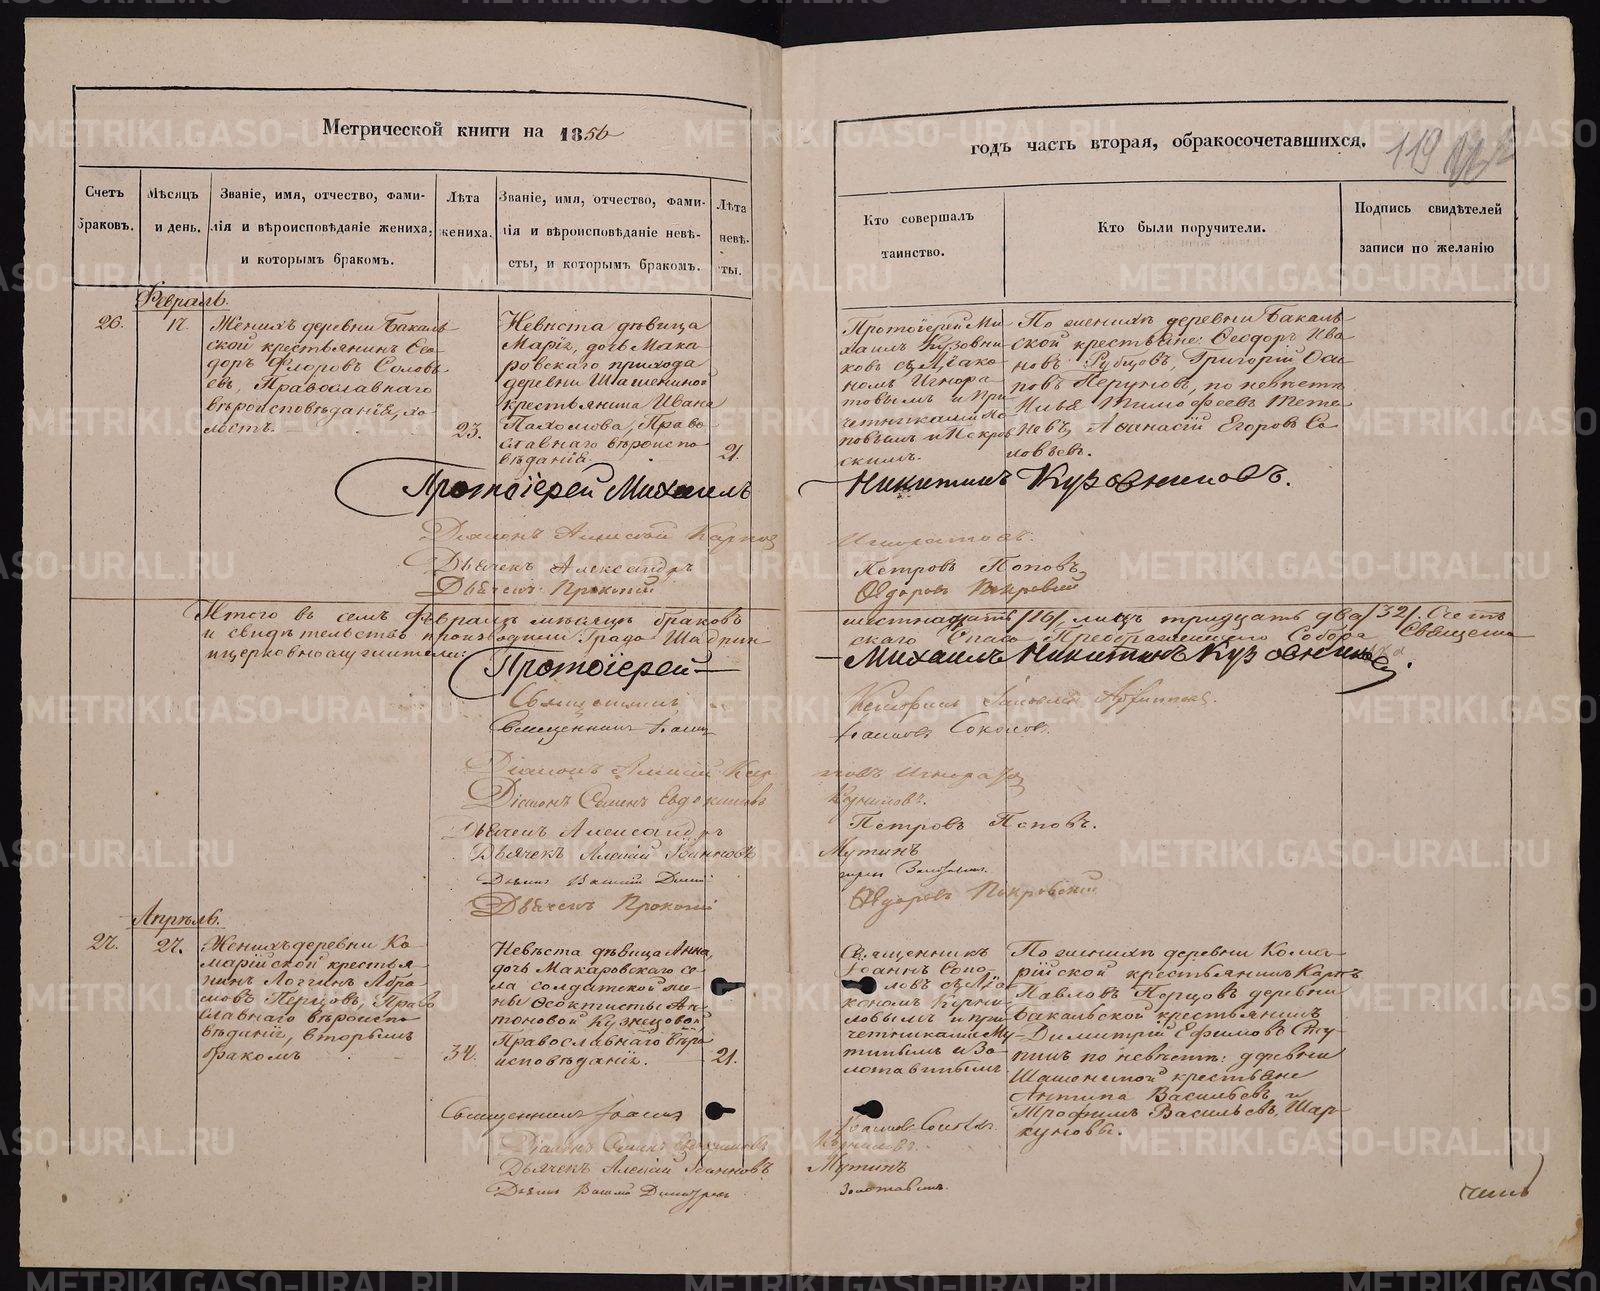 Метрической книги на 1856
годъ часть вторая, обракосочетавшихся.
119
Счетъ браковъ.
Мѣсяцъ и день.
Званіе, имя, отчество, фамилія и вѣроисповѣданіе жениха, и которымъ бракомъ.
Лѣта жениха.
Званіе, имя, отчество, фамилія и вѣроисповѣданіе невѣсты, и которымъ бракомъ.
Лѣта невѣсты.
Кто совершалъ таинство.
Кто были поручители.
Подпись свидѣтелей записи по желанію
Февраль.
26.
Женихъ деревни Бакаль
ской крестьянинъ Ѳео
доръ Флоровъ Соловь
евъ, Православнаго
вѣроисповѣданія, хо
лостъ.
23.
Невѣста дѣвица
Марія, дочь Мака
ровскаго прихода
деревни Шашениной
крестьянина Ивана
Пахомова, Право
славнаго вѣроиспо
вѣданія.
21.
Протоіерей Ми
хаилъ Кузовни
ковъ съ Діако
номъ Игнора
товымъ и при
четниками По
повымъ и Покров
скимъ.
По женихѣ деревни Бакаль
ской крестьяне: Ѳеодоръ Ива
новъ Рубцовъ, Григорій Оси
повъ Перуновъ, по невѣстѣ
Илья Тимофеевъ Тете
невъ, Аѳанасій Егоровъ Со
ловьевъ.
Протоіерей Михаилъ Никитинъ Кузовниковъ.
Діаконъ Алексѣй Карпов
Игноратовъ.
Дьячекъ Александръ Петровъ Поповъ
Дьячекъ Прокопій Ѳедоровъ Покровскій
Итого въ семъ Февралѣ мѣсяцѣ браковъ шестнадцать /16/, лицъ тридцать два /32/. Въ семъ
и свидѣтельство производили: Града Шадрин скаго Спасо Преображенскаго Собора Священно
ицерковнослужители:
Протоіерей Михаилъ Никитинъ Кузовниковъ.
Священникъ
Священникъ Іоаннъ Іоанновъ Соколовъ.
Діаконъ Алексій Кар повъ Игноратов
Діаконъ Семенъ Евдокимовъ Корниловъ.
Дьячекъ Александръ Петровъ Поповъ.
Дьячекъ Алексій Іоанновъ Мутинъ
Дьячекъ Прокопій Ѳедоровъ Покровскій
Апрѣль.
27.
27.
Женихъ деревни Ко
марійской крестья
нинъ Логгинъ Абра
мовъ Перцовъ, Право
славнаго вѣроиспо
вѣданія, вторымъ
бракомъ
34.
Невѣста дѣвица Анна,
дочь Макаровскаго се
ла солдатской же
ны Ѳеоктисты Ан
тоновой Кузнецовой,
Православнаго вѣро
исповѣданія.
21.
Священникъ
Іоаннъ Соко
ловъ съ Діа
кономъ Корни
ловымъ и при
четниками Му
тинымъ и Зо
лотавинымъ
По женихѣ деревни Кома
рійской крестьянинъ Карпъ
Павловъ Перцовъ деревни
Бакальской крестьянинъ
Димитрій Ефимовъ Сту
пинъ по невѣстѣ: деревни
Шашениной крестьяне
Антипа Васильевъ и
Трофимъ Васильевъ Шар
куновы.
Священникъ Іоаннъ Іоанновъ Соколовъ.
Діаконъ Семенъ Евдокимовъ Корниловъ.
Дьячекъ Алексій Іоанновъ Мутинъ
Золотавинъ.